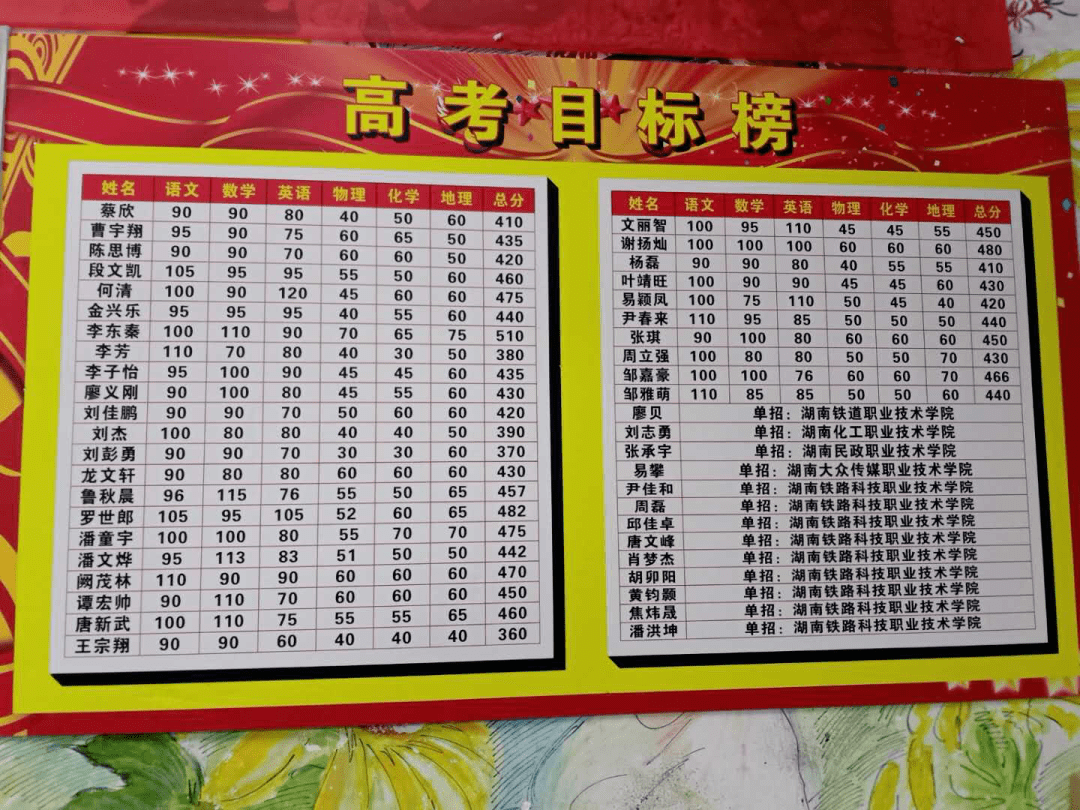 高考目标榜
姓名 语文 数学 英语 物理 化学 地理 总分
蔡欣 90 90 80 40 50 60 410
曹宇翔 95 90 75 60 65 50 435
陈思博 90 90 70 60 60 50 420
段文凯 105 95 95 55 50 60 460
何清 100 90 120 45 60 60 475
金兴乐 95 95 95 40 55 60 440
李东秦 100 110 90 70 65 75 510
李芳 110 70 80 40 30 50 380
李子怡 95 100 90 45 45 60 435
廖义刚 90 100 80 45 55 60 430
刘佳鹏 90 90 70 50 60 60 420
刘杰 100 80 80 40 40 50 390
刘彭勇 90 90 70 30 30 60 370
龙文轩 90 80 80 60 60 60 430
鲁秋晨 96 115 76 55 50 65 457
罗世郎 105 95 105 52 60 65 482
潘童宇 100 100 80 55 70 70 475
潘文烨 95 113 83 51 50 50 442
阙茂林 110 90 90 60 60 60 470
谭宏帅 90 110 70 60 60 60 450
唐新武 100 110 75 55 55 65 460
王宗翔 90 90 60 40 40 40 360
姓名 语文 数学 英语 物理 化学 地理 总分
文丽智 100 95 110 45 45 55 450
谢扬灿 100 100 100 60 60 60 480
杨磊 90 90 80 40 55 55 410
叶靖旺 100 90 90 45 45 60 430
易颖凤 100 75 110 50 45 40 420
尹春来 110 95 85 50 50 50 440
张琪 90 100 80 60 60 60 450
周立强 100 80 80 50 50 70 430
邹嘉豪 100 100 76 60 60 70 466
邹雅萌 110 85 85 50 50 60 440
廖贝 单招：湖南铁道职业技术学院
刘志勇 单招：湖南化工职业技术学院
张承宇 单招：湖南民政职业技术学院
易攀 单招：湖南大众传媒职业技术学院
尹佳和 单招：湖南铁路科技职业技术学院
周磊 单招：湖南铁路科技职业技术学院
邱佳卓 单招：湖南铁路科技职业技术学院
唐文峰 单招：湖南铁路科技职业技术学院
肖梦杰 单招：湖南铁路科技职业技术学院
胡卯阳 单招：湖南铁路科技职业技术学院
黄钧颢 单招：湖南铁路科技职业技术学院
焦炜晟 单招：湖南铁路科技职业技术学院
潘洪坤 单招：湖南铁路科技职业技术学院